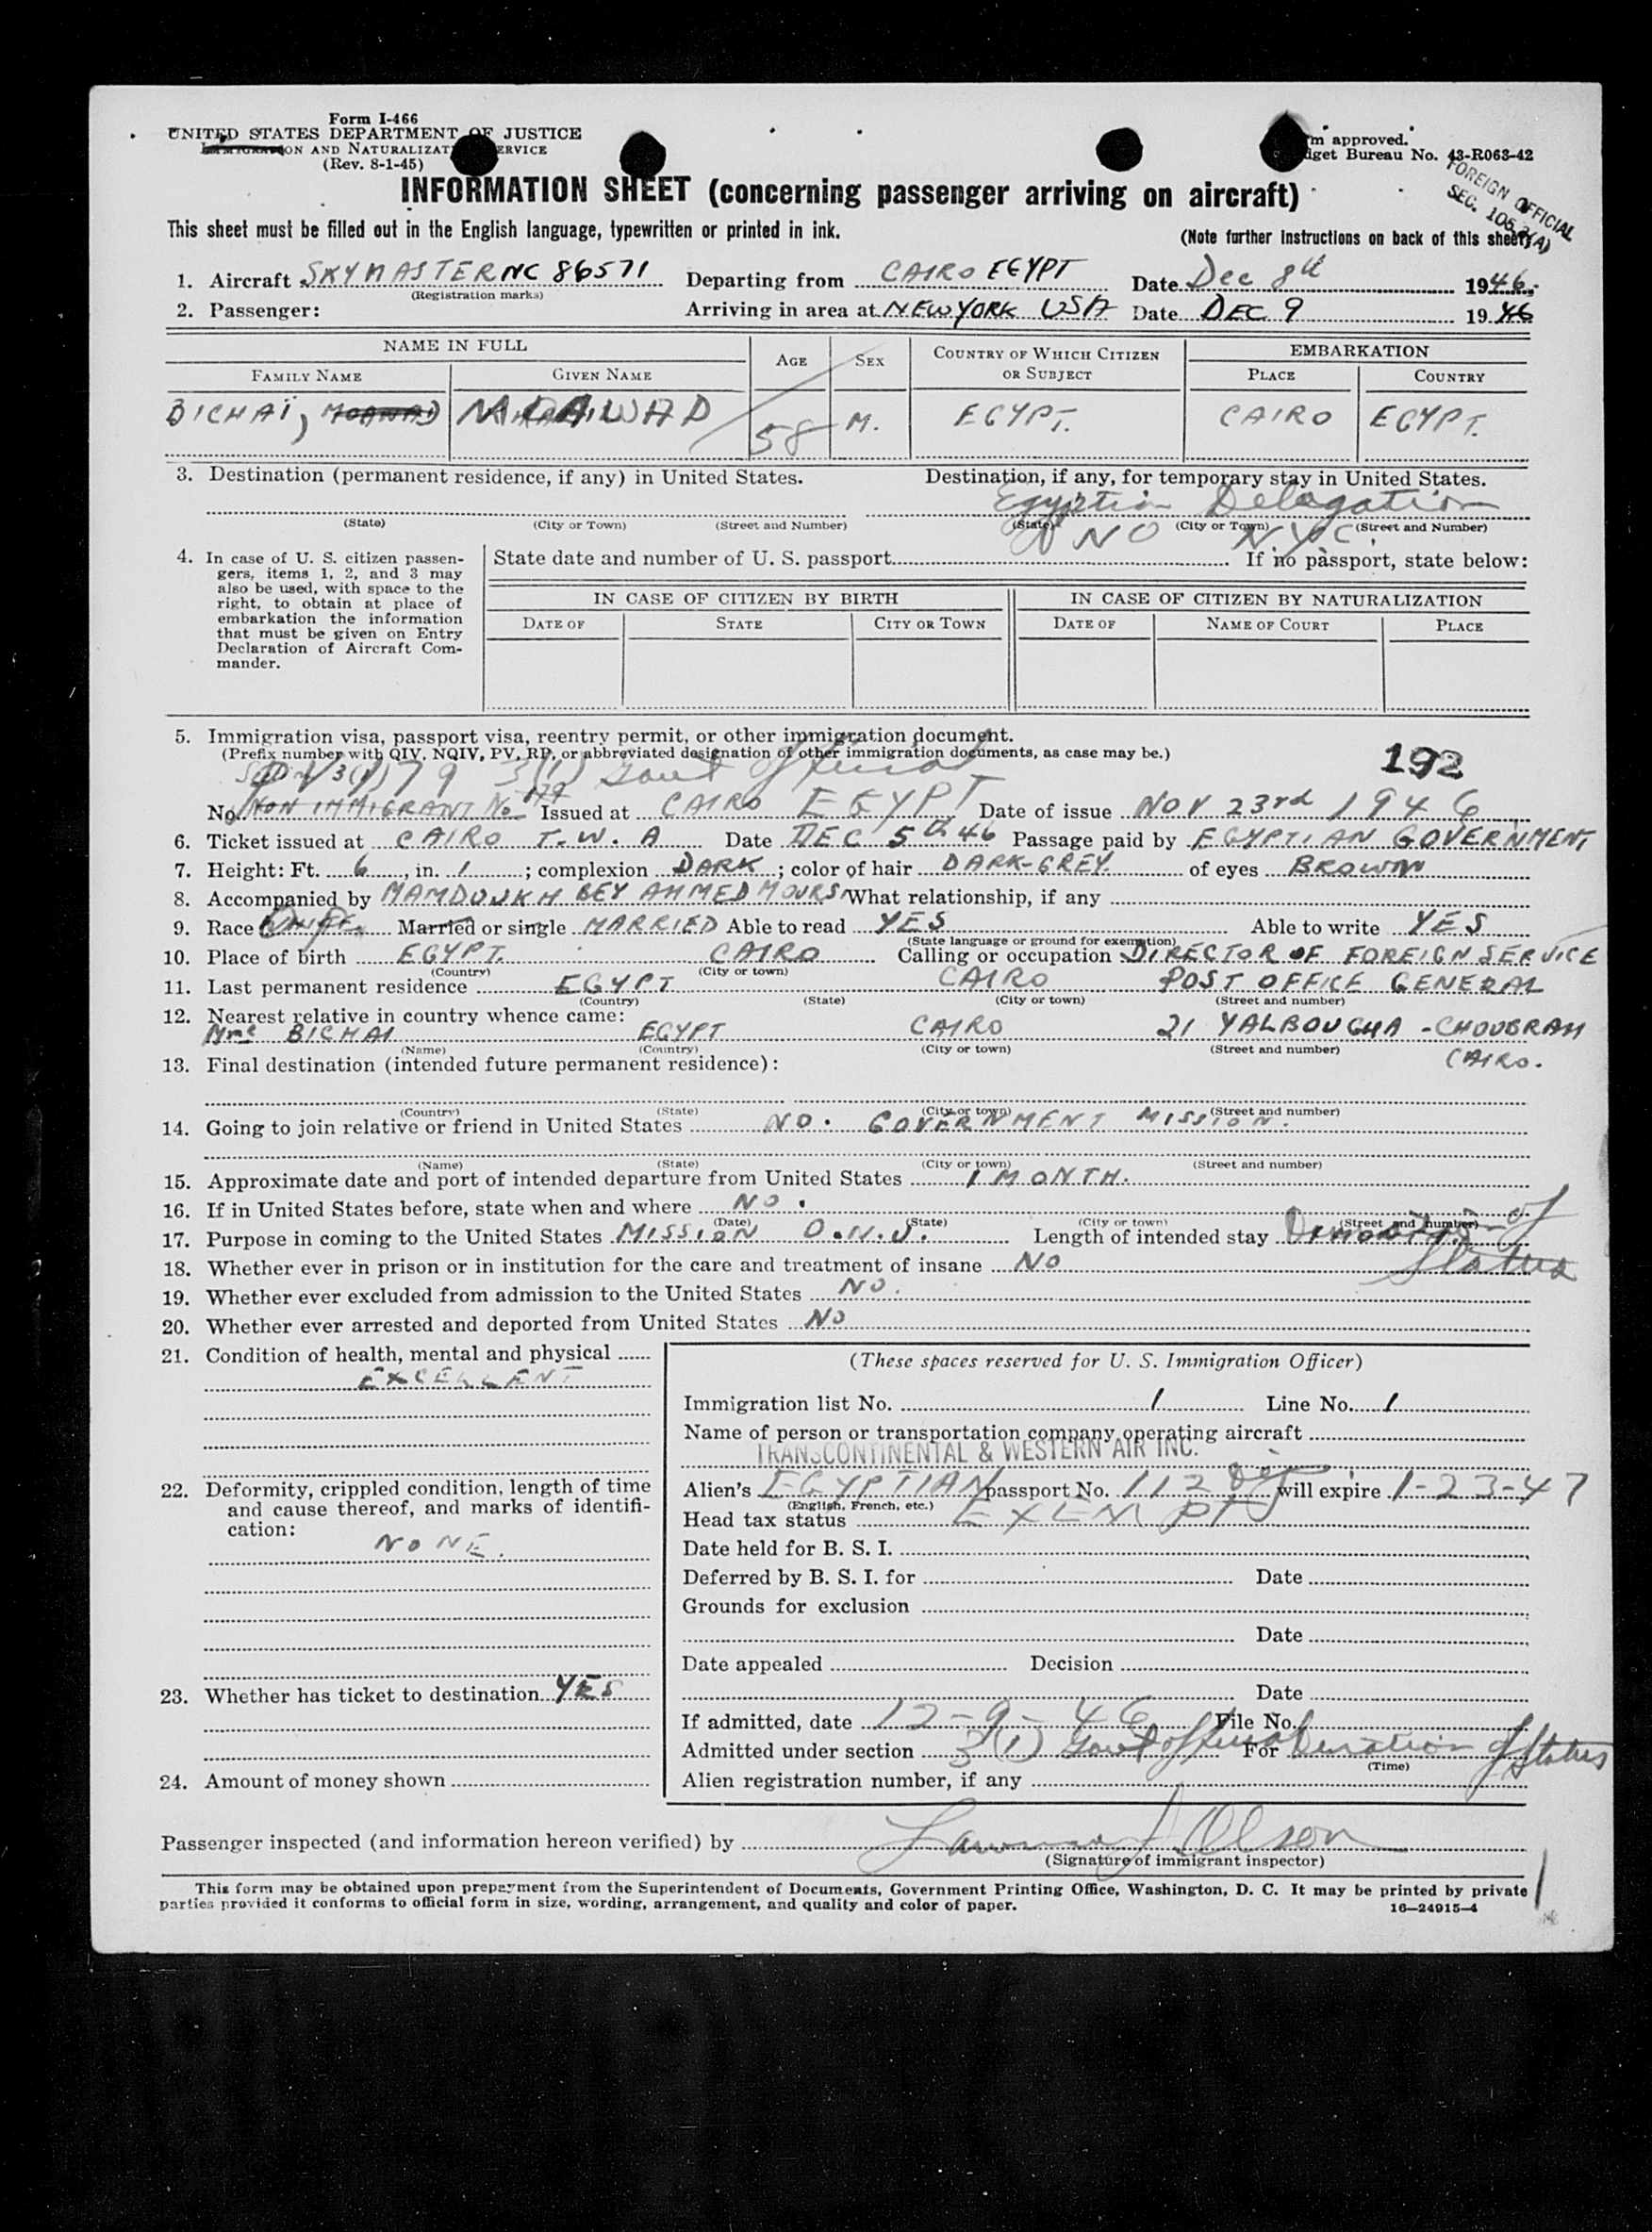 Form I-466
UNITED STATES DEPARTMENT OF JUSTICE
IMMIGRATION AND NATURALIZATION SERVICE
(Rev. 8-1-45)
approved.
Bureau No. 43-R063-42
FOREIGN OFFICIAL
SEC. 105.3(A)
INFORMATION SHEET (concerning passenger arriving on aircraft)
This sheet must be filled out in the English language, typewritten or printed in ink.
(Note further instructions on back of this sheet)
1. Aircraft SKYMASTER NC 86571 Departing from CAIRO EGYPT Date Dec 8th 1946
(Registration marks)
2. Passenger: Arriving in area at NEW YORK USA Date DEC 9 1946
NAME IN FULL AGE SEX COUNTRY OF WHICH CITIZEN OR SUBJECT EMBARKATION
FAMILY NAME GIVEN NAME PLACE COUNTRY
BICHAÏ, 58 M. EGYPT. CAIRO EGYPT.
3. Destination (permanent residence, if any) in United States. Destination, if any, for temporary stay in United States.
Egyptian Delegation
(State) (City or Town) (Street and Number) (State) (City or Town) (Street and Number)
UNO NYC
4. In case of U. S. citizen passengers, items 1, 2, and 3 may also be used, with space to the right, to obtain at place of embarkation the information that must be given on Entry Declaration of Aircraft Commander.
State date and number of U. S. passport If no passport, state below:
IN CASE OF CITIZEN BY BIRTH IN CASE OF CITIZEN BY NATURALIZATION
DATE OF STATE CITY OR TOWN DATE OF NAME OF COURT PLACE
5. Immigration visa, passport visa, reentry permit, or other immigration document.
(Prefix number with QIV, NQIV, PV, RP, or abbreviated designation of other immigration documents, as case may be.)
192
3(1) 79 3(1) Govt Official
No. NON IMMIGRANT No 179 Issued at CAIRO EGYPT Date of issue NOV 23rd 1946
6. Ticket issued at CAIRO T.W.A Date DEC 5th 46 Passage paid by EGYPTIAN GOVERNMENT
7. Height: Ft. 6, in. 1; complexion DARK; color of hair DARK-GREY. of eyes BROWN
8. Accompanied by MAMDOUKH BEY AHMED MOURSI What relationship, if any
9. Race White Married or single MARRIED Able to read YES Able to write YES
(State language or ground for exemption)
10. Place of birth EGYPT. CAIRO Calling or occupation DIRECTOR OF FOREIGN SERVICE
(Country) (City or town)
11. Last permanent residence EGYPT CAIRO POST OFFICE GENERAL
(Country) (State) (City or town) (Street and number)
12. Nearest relative in country whence came:
Mrs BICHAI EGYPT CAIRO 21 YALBOUGHA - CHOUBRAH
(Name) (Country) (City or town) (Street and number)
CAIRO.
13. Final destination (intended future permanent residence):
(Country) (State) (City or town) (Street and number)
14. Going to join relative or friend in United States NO. GOVERNMENT MISSION.
(Name) (State) (City or town) (Street and number)
15. Approximate date and port of intended departure from United States 1 MONTH.
16. If in United States before, state when and where NO.
(Date) (State) (City or town) (Street and number)
17. Purpose in coming to the United States MISSION O.N.U. Length of intended stay Duration of Status
18. Whether ever in prison or in institution for the care and treatment of insane NO
19. Whether ever excluded from admission to the United States NO.
20. Whether ever arrested and deported from United States NO
21. Condition of health, mental and physical
EXCELLENT
22. Deformity, crippled condition, length of time and cause thereof, and marks of identification:
NONE.
23. Whether has ticket to destination YES
24. Amount of money shown
(These spaces reserved for U. S. Immigration Officer)
Immigration list No. 1 Line No. 1
Name of person or transportation company operating aircraft
TRANSCONTINENTAL & WESTERN AIR INC.
Alien's EGYPTIAN passport No. 112 will expire 1-23-47
(English, French, etc.)
Head tax status EXEMPT
Date held for B. S. I.
Deferred by B. S. I. for Date
Grounds for exclusion
Date
Date appealed Decision
Date
If admitted, date 12-9-46 File No.
Admitted under section 3(1) Govt official For Duration of Status
(Time)
Alien registration number, if any
Passenger inspected (and information hereon verified) by Olson
(Signature of immigrant inspector)
This form may be obtained upon prepayment from the Superintendent of Documents, Government Printing Office, Washington, D. C. It may be printed by private
parties provided it conforms to official form in size, wording, arrangement, and quality and color of paper.
16—24915-4